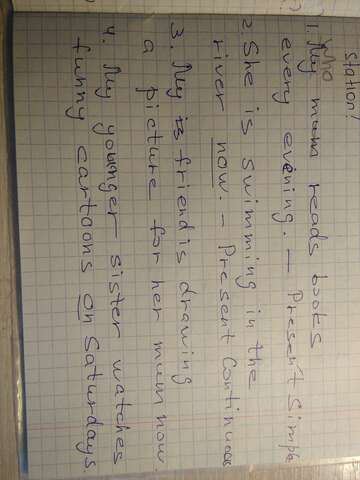 station?
Who
1. My mum reads books
every evening. — Present Simple
2. She is swimming in the
river now. – Present Continuous
3. My is friend is drawing
a picture for her mum now
4. My younger sister watches
funny cartoons on Saturdays